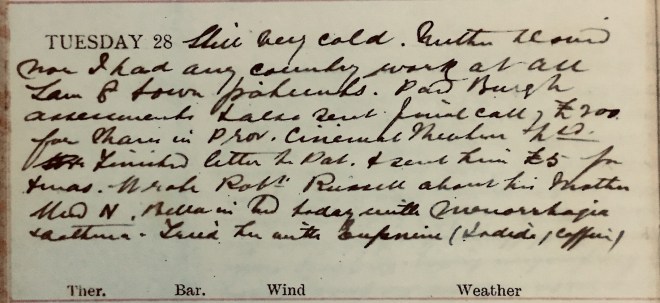 TUESDAY 28 Still very cold. Neither David
nor I had any country work at all
Saw 8 town patients. Paid Burgh
assessments & also sent final call of £200
for shares in Prov. Cinema Theatres Ltd.
Finished letter to Pat. & sent him £5 for
Xmas. Wrote Robt. Russell about his mother
Med N. Bella in bed today with Menorrhagia
& asthma. Tried her with (Iodide, Caffein)
Ther. Bar. Wind Weather